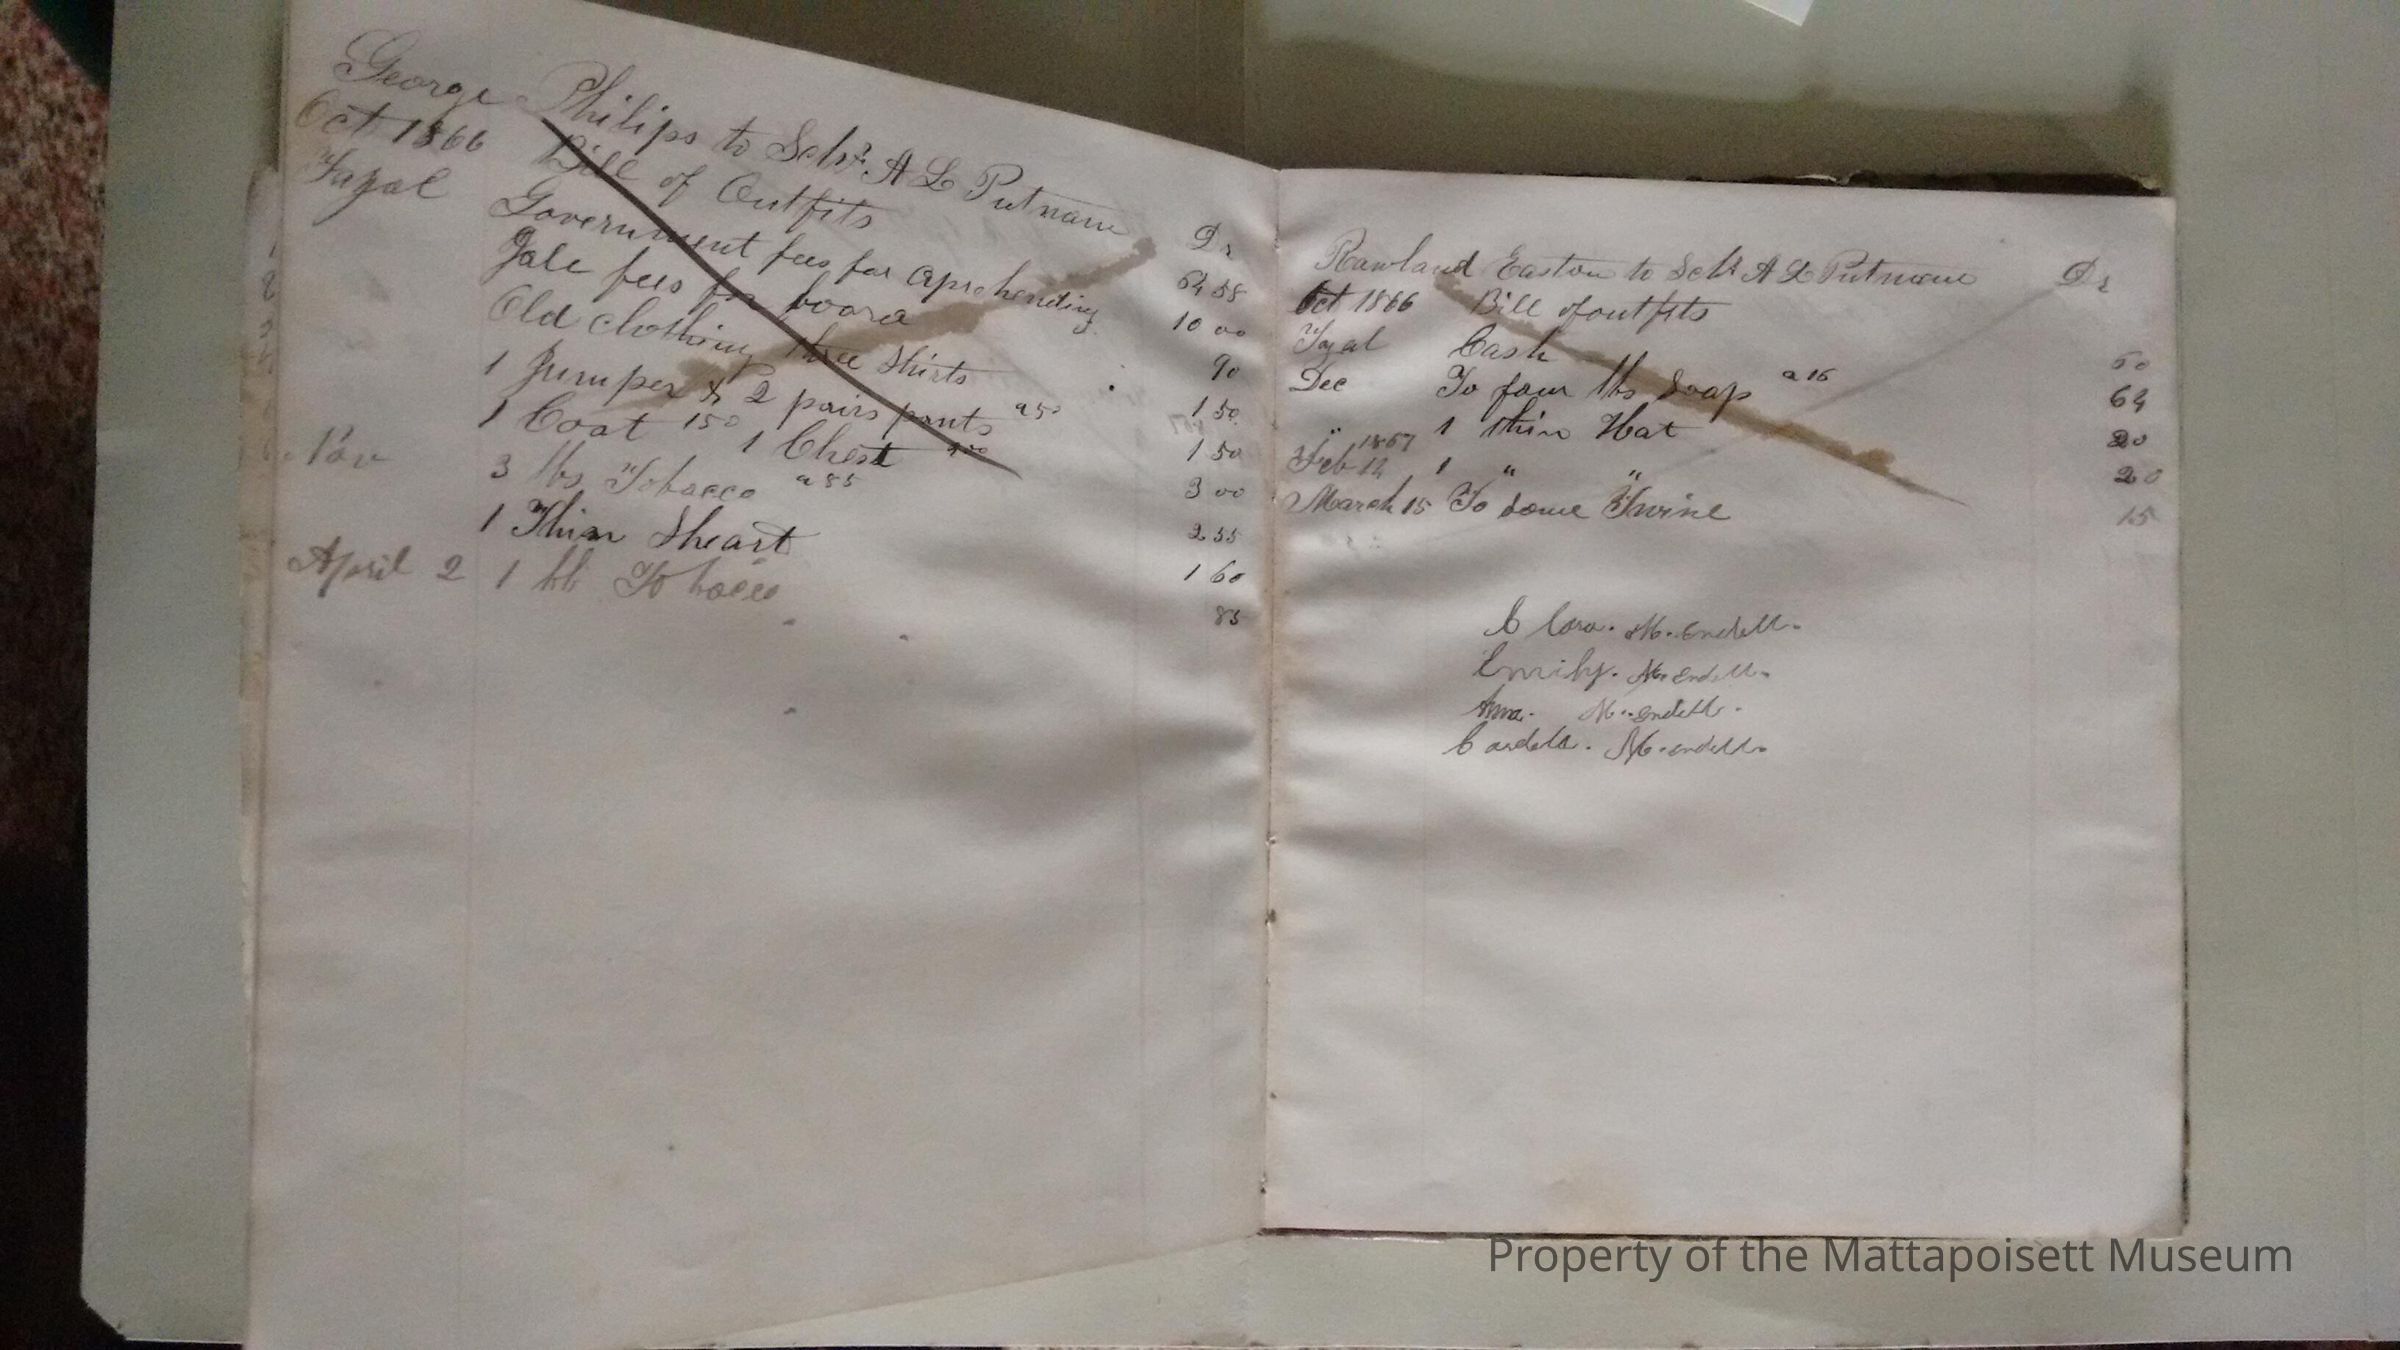 George Philips to Schr. A L Putnam Dr
Oct 1866 Bill of Outfits 64 58
Fayal Government fees for aprehending 10 00
Jale fees for board 90
Old clothing three Shirts 1 50
1 Jumper & 2 pairs pants a 50 1 50
1 Coat 150 1 Chest 3 00
Nov 3 lbs Tobacco a 85 2 55
1 Thin Sheart 1 60
April 2 1 lb Tobacco 85
Rawland Easton to Schr A L Putnam Dr
Oct 1866 Bill of outfits
Fayal Cash 50
Dec To four lbs Soap a 16 64
" 1 thin Hat 20
1867
Feb 12 1 " " 20
March 15 To some Twine 15
Clara. M. endell.
Emily. M. endell.
Anna. M. endell.
Cardell. M. endell.
Property of the Mattapoisett Museum